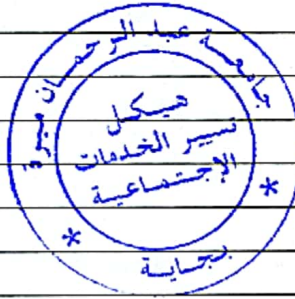 جامعة عبد الرحمان ميرة
هيكل
تسيير الخدمات
الإجتماعية
بجاية